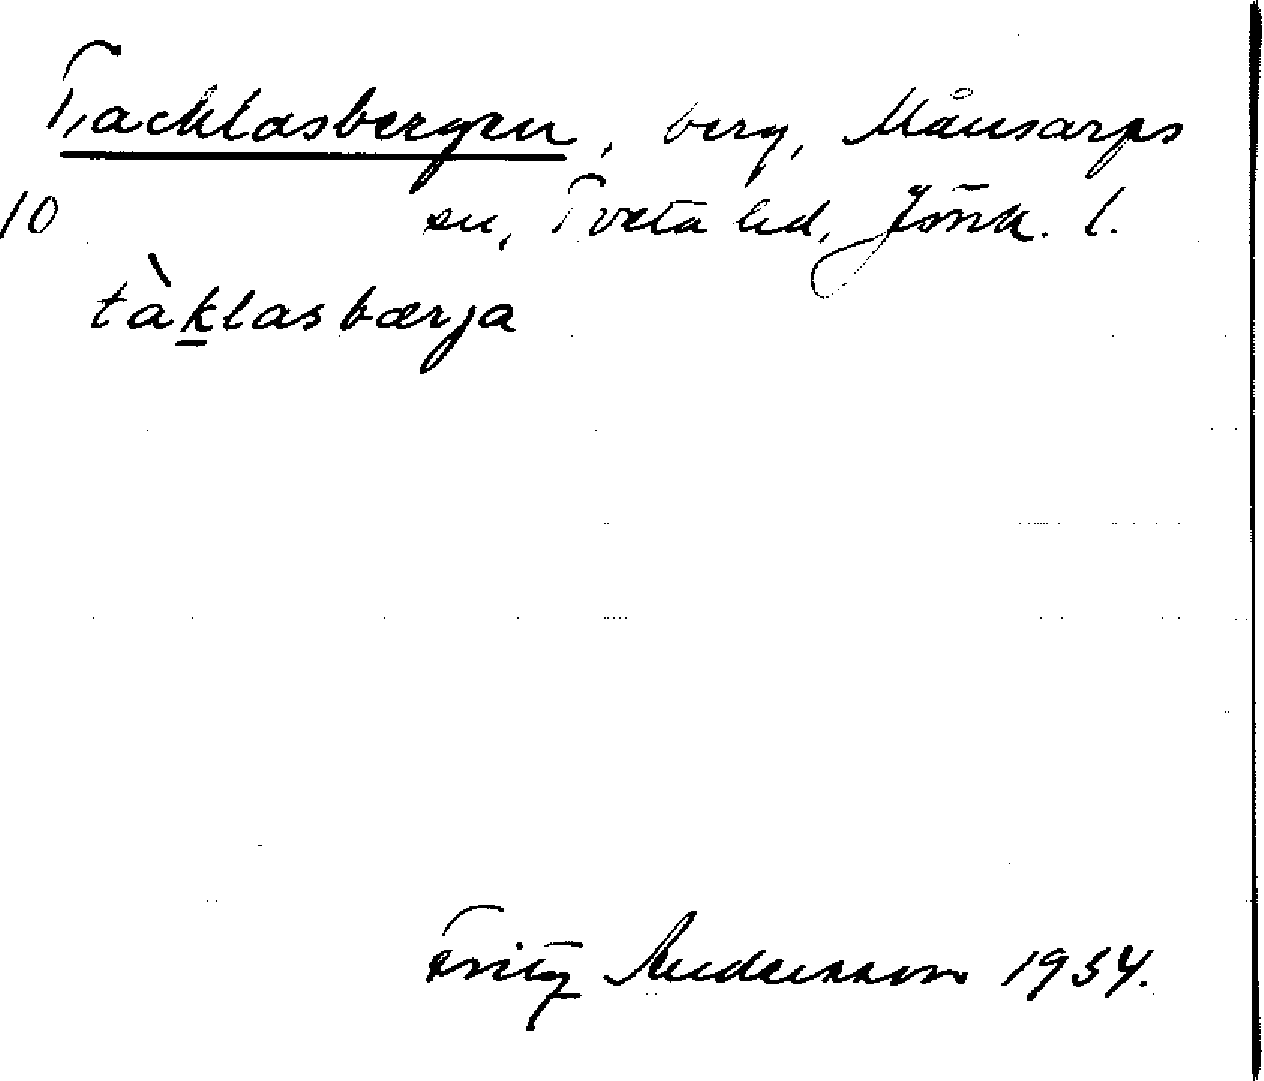 Tacklasbergen, berg, Månsarps
10 sn, Tveta hd, Jönk. l.
tàklasbærja
Fritz Andersson 1934.